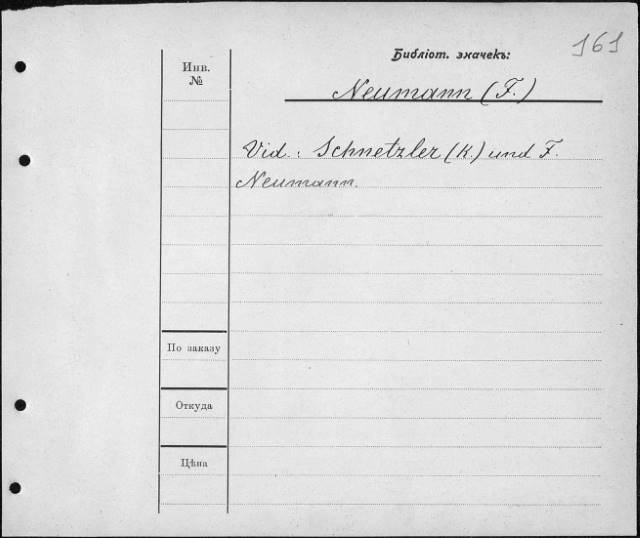 161
Библіот. значекъ:
Инв.
№
Neumann (F.)
Vid.: Schnetzler (K.) und F.
Neumann.
По заказу
Откуда
Цѣна